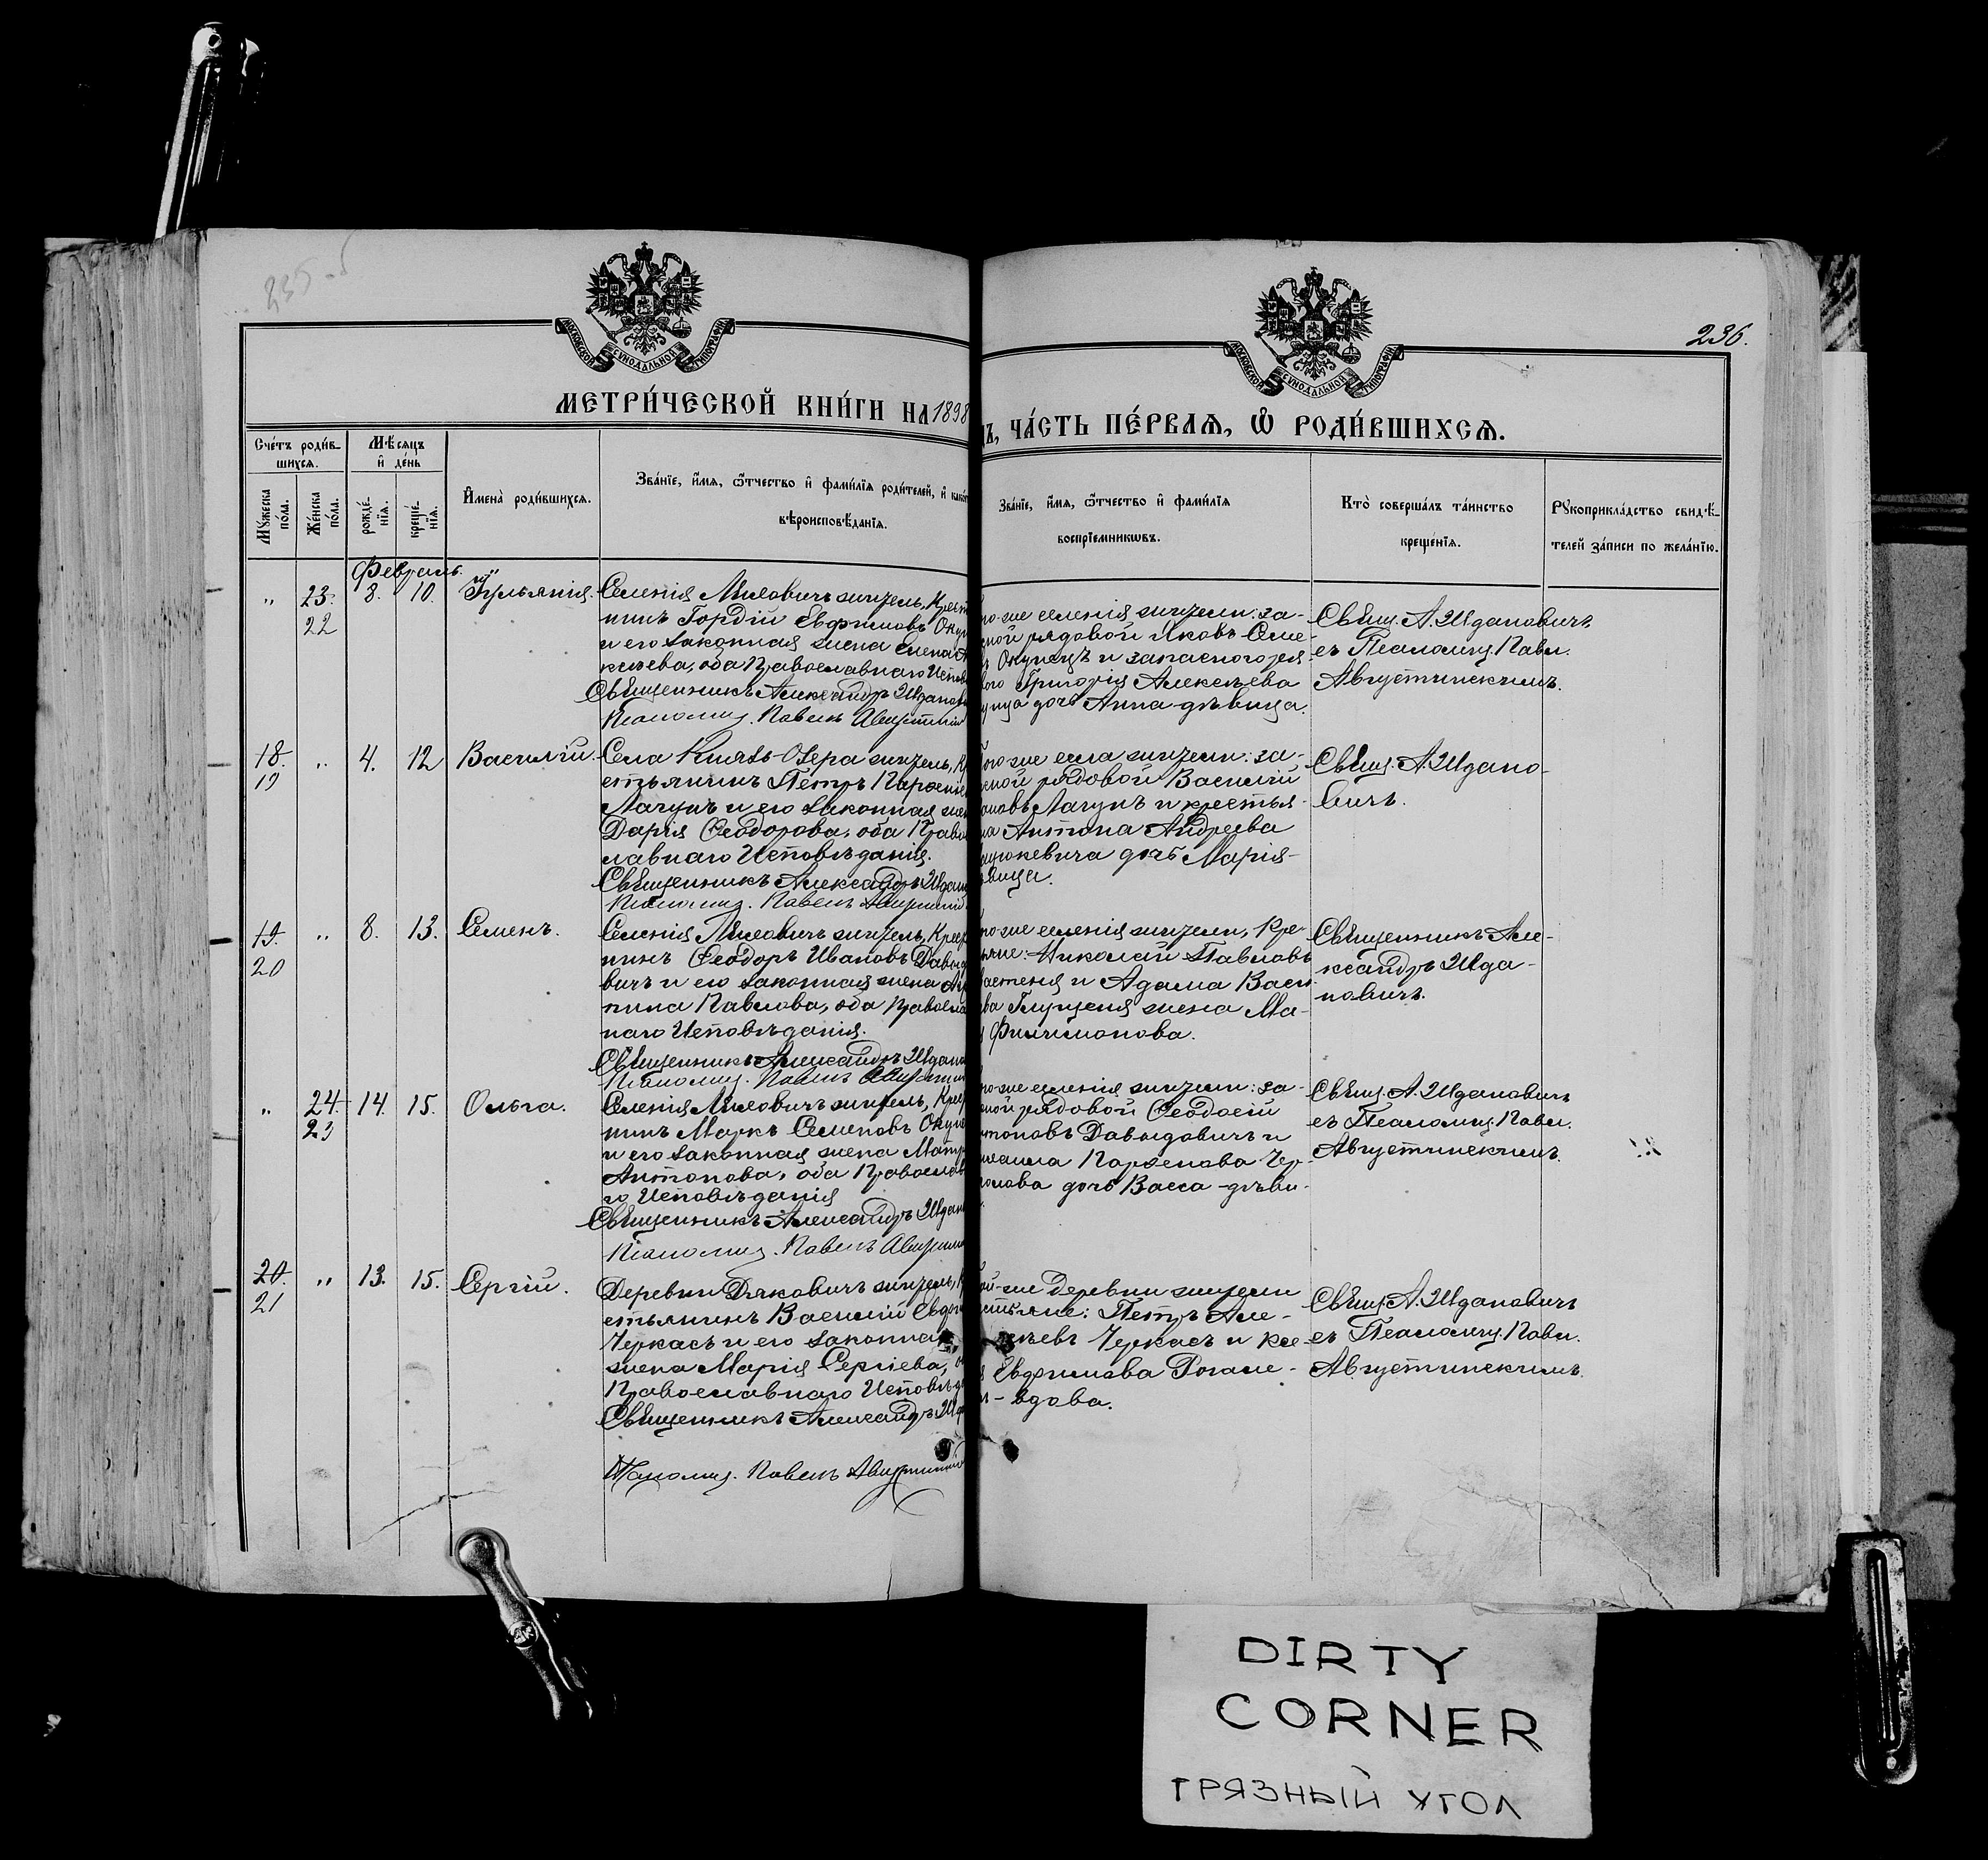 235 об
236.
МОСКОВСКОЙ СѴНОДАЛЬНОЙ ТИПОГРАФІИ
МОСКОВСКОЙ СѴНОДАЛЬНОЙ ТИПОГРАФІИ
МЕТРИ́ЧЕСКОЙ КНИ́ГИ НА 1898
ДЪ, ЧА́СТЬ ПЕ́РВАѦ, Ѡ҆ РОДИ́ВШИХСѦ.
Сче́тъ роди́в-
шихсѧ.
Мѣ́сѧцъ
и҆ де́нь
Мꙋ́жеска по́ла.
Же́нска по́ла.
рожде́-
нїѧ.
креще́-
нїѧ.
И҆мена̀ роди́вшихсѧ.
Зва́нїе, и҆́мѧ, ѻ҆́тчество и҆ фами́лїѧ роди́телей, и҆ како́г
вѣроисповѣ́данїѧ.
Зва́нїе, и҆́мѧ, ѻ҆́тчество и҆ фами́лїѧ
воспрїе́мникѡвъ.
Кто̀ соверша́лъ та́инство
креще́нїѧ.
Рꙋкоприкла́дство свидѣ́-
телей за́писи по жела́нїю.
Февраль.
" 23. 22 8. 10. Іульянія.
Селенія Милевичъ житель, Крест
нинъ Гордій Евфимовъ Окун
и его законная жена Елена А
ксѣева, оба Православнаго Испов
Священникъ Александръ Жданов
Псаломщ. Павелъ Августин
го-же селенія жители: за-
сной рядовой Яковъ Семе-
въ Окунецъ и запасного ряд
вого Григорія Алексѣева
унца дочь Анна-дѣвица.
Свящ. А. Ждановичъ
съ Псаломщ. Павл.
Августинскимъ.
18. 19 " 4. 12 Василій.
Села Князь-Озера житель, Кр
естьянинъ Пётръ Парѳене
Лагунъ и его законная жен
Дарія Ѳеодорова, оба Право
славнаго Исповѣданія.
Священникъ Александръ Ждан
Псаломщ. Павелъ Августин
того-же села жители: за-
сной рядовой Василій
ановъ Лагунъ и крестья-
на Антона Андреева
цюкевича дочь Марія-
вица.
Свящ. А. Ждано-
вичъ.
19. 20 " 8. 13. Семенъ.
Селенія Милевичъ житель, Крест
нинъ Ѳеодоръ Ивановъ Давыд
вичъ и его законная жена
тина Павлова, оба Правосла
наго Исповѣданія.
Священникъ Александръ Ждан
Псаломщ. Павелъ Августин
го-же селенія жители, Кре-
яне: Николай Павловъ
и Адама Васи
ва Глуценя жена Ма-
я Филимонова.
Священникъ Але-
ксандръ Жда-
новичъ.
" 24. 23 14. 15. Ольга.
Селенія Милевичъ житель, Крест
нинъ Маркъ Семеновъ Окуне
и его законная жена Матр
Антонова, оба Православ
го Исповѣданія
Священникъ Александръ Ждан
Псаломщ. Павелъ Августин
го-же селенія жители: за-
сной рядовой Ѳеодосій
нтоновъ Давыдовичъ и
Парѳенова Чер-
дочь Васса-дѣви-
Свящ. А. Ждановичъ
съ Псаломщ. Павл.
Августинскимъ.
20. 21 " 13. 15. Сергій.
Деревни Дяковичъ житель, К
естьянинъ Василій Евфи
Черкасъ и его законная
жена Марія Сергіева, об
Православнаго Исповѣда
Священникъ Александръ Жд
Псаломщ. Павелъ Августинскій
ой-же деревни жители
естьяне: Петръ Але-
ксѣевъ Черкасъ и Ксе-
я Евфимова Рогале-
- вдова.
Свящ. А. Ждановичъ
съ Псаломщ. Павл.
Августинскимъ.
DIRTY
CORNER
ГРЯЗНЫЙ УГОЛ